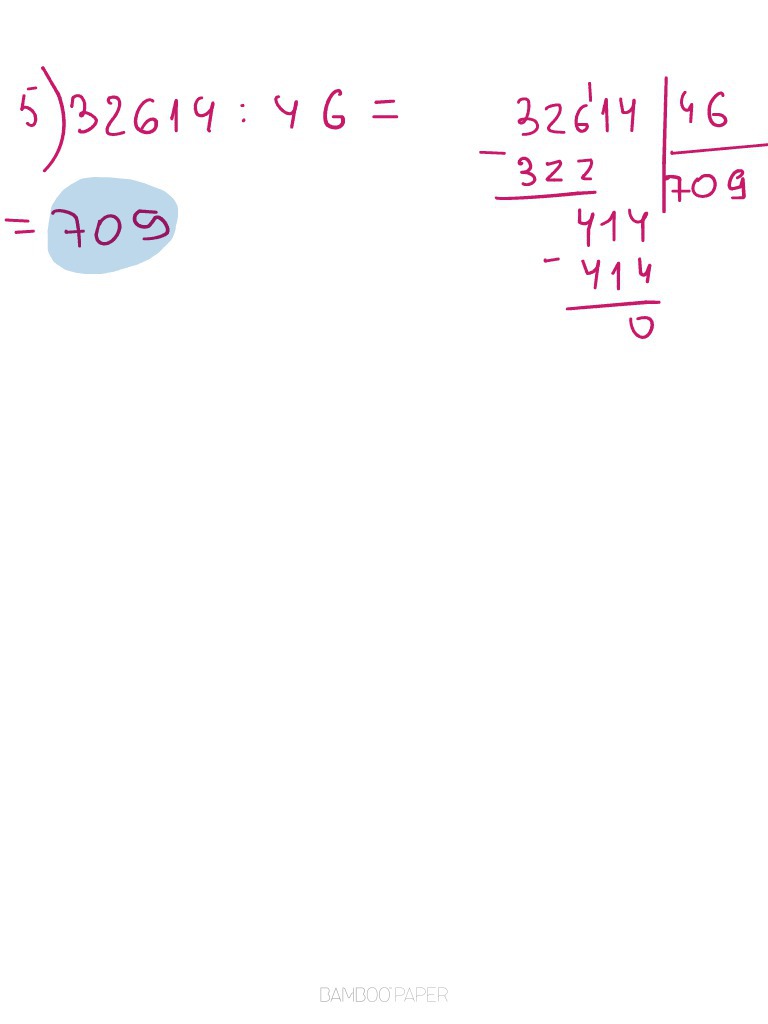 5) 32614 : 46 =
= 709
32614 | 46
- 322 | 709
414
- 414
0
BAMBOO PAPER